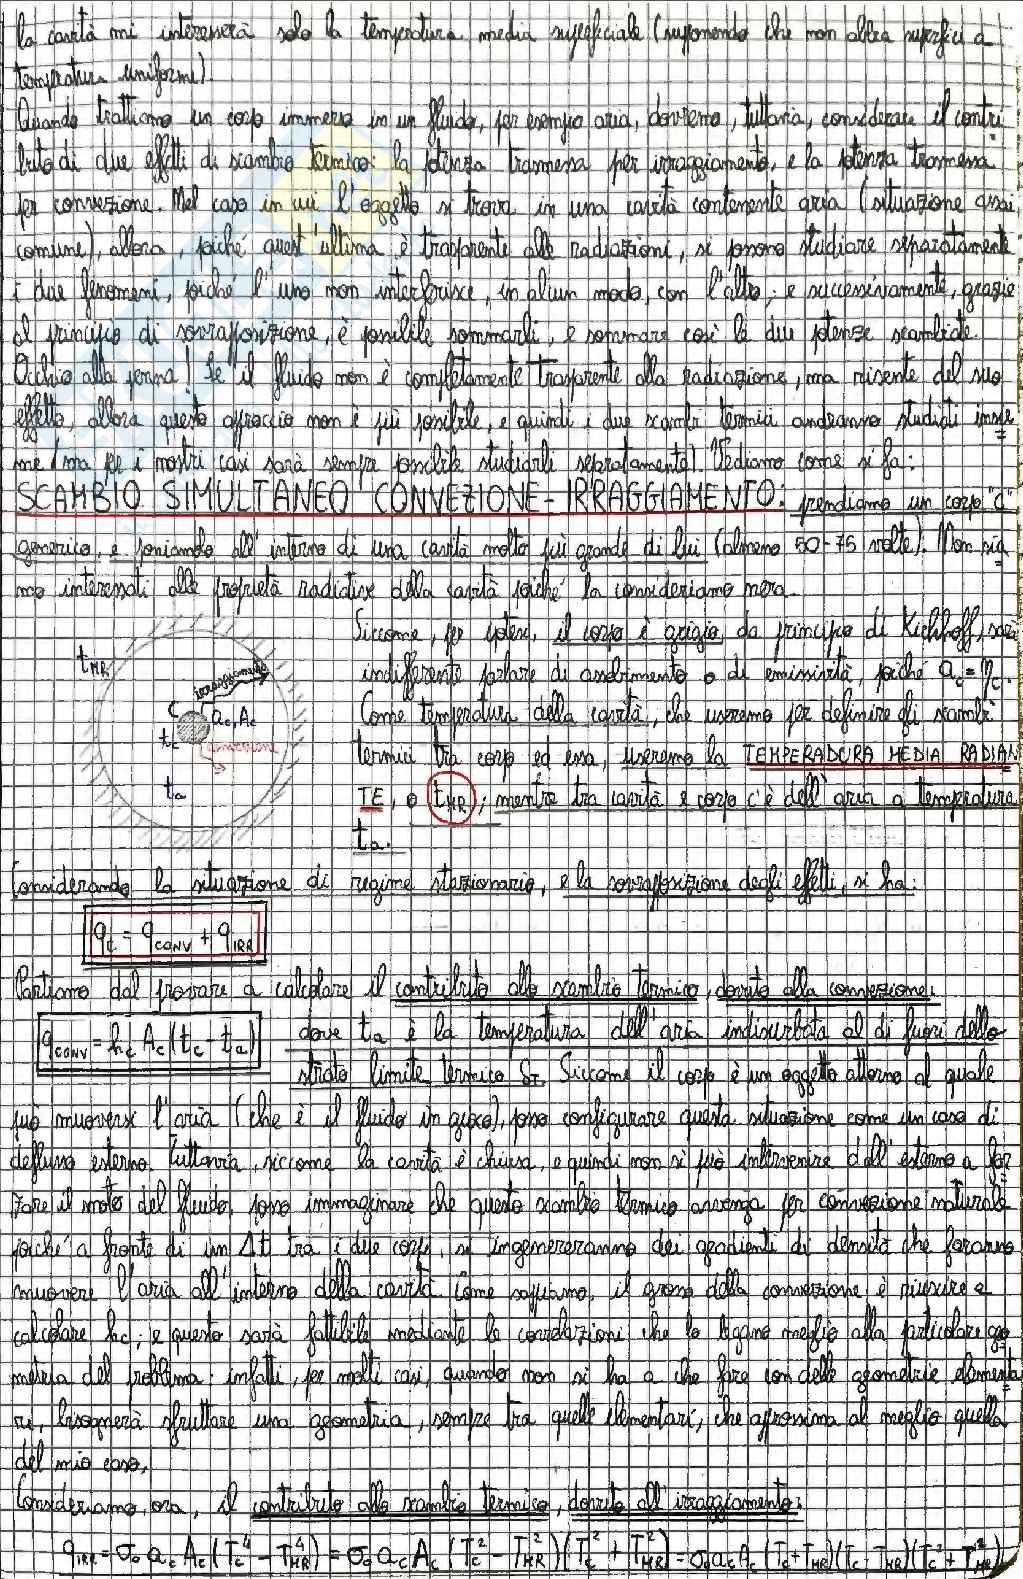 la cavità mi interesserà solo la temperatura media superficiale (supponendo che non abbia superfici a
temperatura uniforme).
Quando trattiamo un corpo immerso in un fluido, per esempio aria, dovremo, tuttavia, considerare il contri
buto di due effetti di scambio termico: la potenza trasmessa per irraggiamento, e la potenza trasmessa
per convezione. Nel caso in cui l'oggetto si trova in una cavità contenente aria (situazione assai
comune), allora, poiché quest'ultima è trasparente alle radiazioni, si possono studiare separatamente
i due fenomeni, poiché l'uno non interferisce, in alcun modo, con l'altro; e successivamente, grazie
al principio di sovrapposizione, è possibile sommarli, e sommare così le due potenze scambiate.
Occhio alla penna! Se il fluido non è completamente trasparente alla radiazione, ma risente del suo
effetto, allora questo approccio non è più possibile, e quindi i due scambi termici andranno studiati insie
me (ma per i nostri casi sarà sempre possibile studiarli separatamente). Vediamo come si fa:
SCAMBIO SIMULTANEO CONVEZIONE-IRRAGGIAMENTO: prendiamo un corpo "C"
generico, e poniamolo all'interno di una cavità molto più grande di lui (almeno 50-75 volte). Non sia
mo interessati alle proprietà radiative della cavità poiché la consideriamo nera.
Siccome, per ipotesi, il corpo è grigio, da principio di Kichhoff, sarà
indifferente parlare di assorbimento o di emissività, poiché a_c = η_c.
Come temperatura della cavità, che useremo per definire gli scambi
termici tra corpo ed essa, useremo la TEMPERADURA MEDIA RADIAN
TE, o t_MR; mentre tra cavità e corpo c'è dell'aria a temperatura
t_a.
t_MR
irraggiamento
C
a_c, A_c
t_c
convezione
t_a
Considerando la situazione di regime stazionario, e la sovrapposizione degli effetti, si ha:
q_t = q_CONV + q_IRR
Partiamo dal provare a calcolare il contributo allo scambio termico, dovuto alla convezione:
q_CONV = h_c A_c (t_c - t_a) dove t_a è la temperatura dell'aria indisturbata al di fuori dello
strato limite termico δ_T. Siccome il corpo è un oggetto attorno al quale
può muoversi l'aria (che è il fluido in gioco), posso configurare questa situazione come un caso di
deflusso esterno. Tuttavia, siccome la cavità è chiusa, e quindi non si può intervenire dall'esterno a for
zare il moto del fluido, posso immaginare che questo scambio termico avvenga per convezione naturale
poiché a fronte di un Δt tra i due corpi, si ingenereranno dei gradienti di densità che faranno
muovere l'aria all'interno della cavità. Come sappiamo, il grosso della convezione è riuscire a
calcolare h_c; e questo sarà fattibile mediante le correlazioni che lo legano meglio alla particolare geo
metria del problema: infatti, per molti casi, quando non si ha a che fare con delle geometrie elementa
ri, bisognerà sfruttare una geometria, sempre tra quelle elementari, che approssima al meglio quella
del mio caso.
Consideriamo, ora, il contributo allo scambio termico, dovuto all'irraggiamento:
q_IRR = σ₀ a_c A_c (T_c⁴ - T_MR⁴) = σ₀ a_c A_c (T_c² - T_MR²)(T_c² + T_MR²) = σ₀ a_c A_c (T_c + T_MR)(T_c - T_MR)(T_c² + T_MR²)